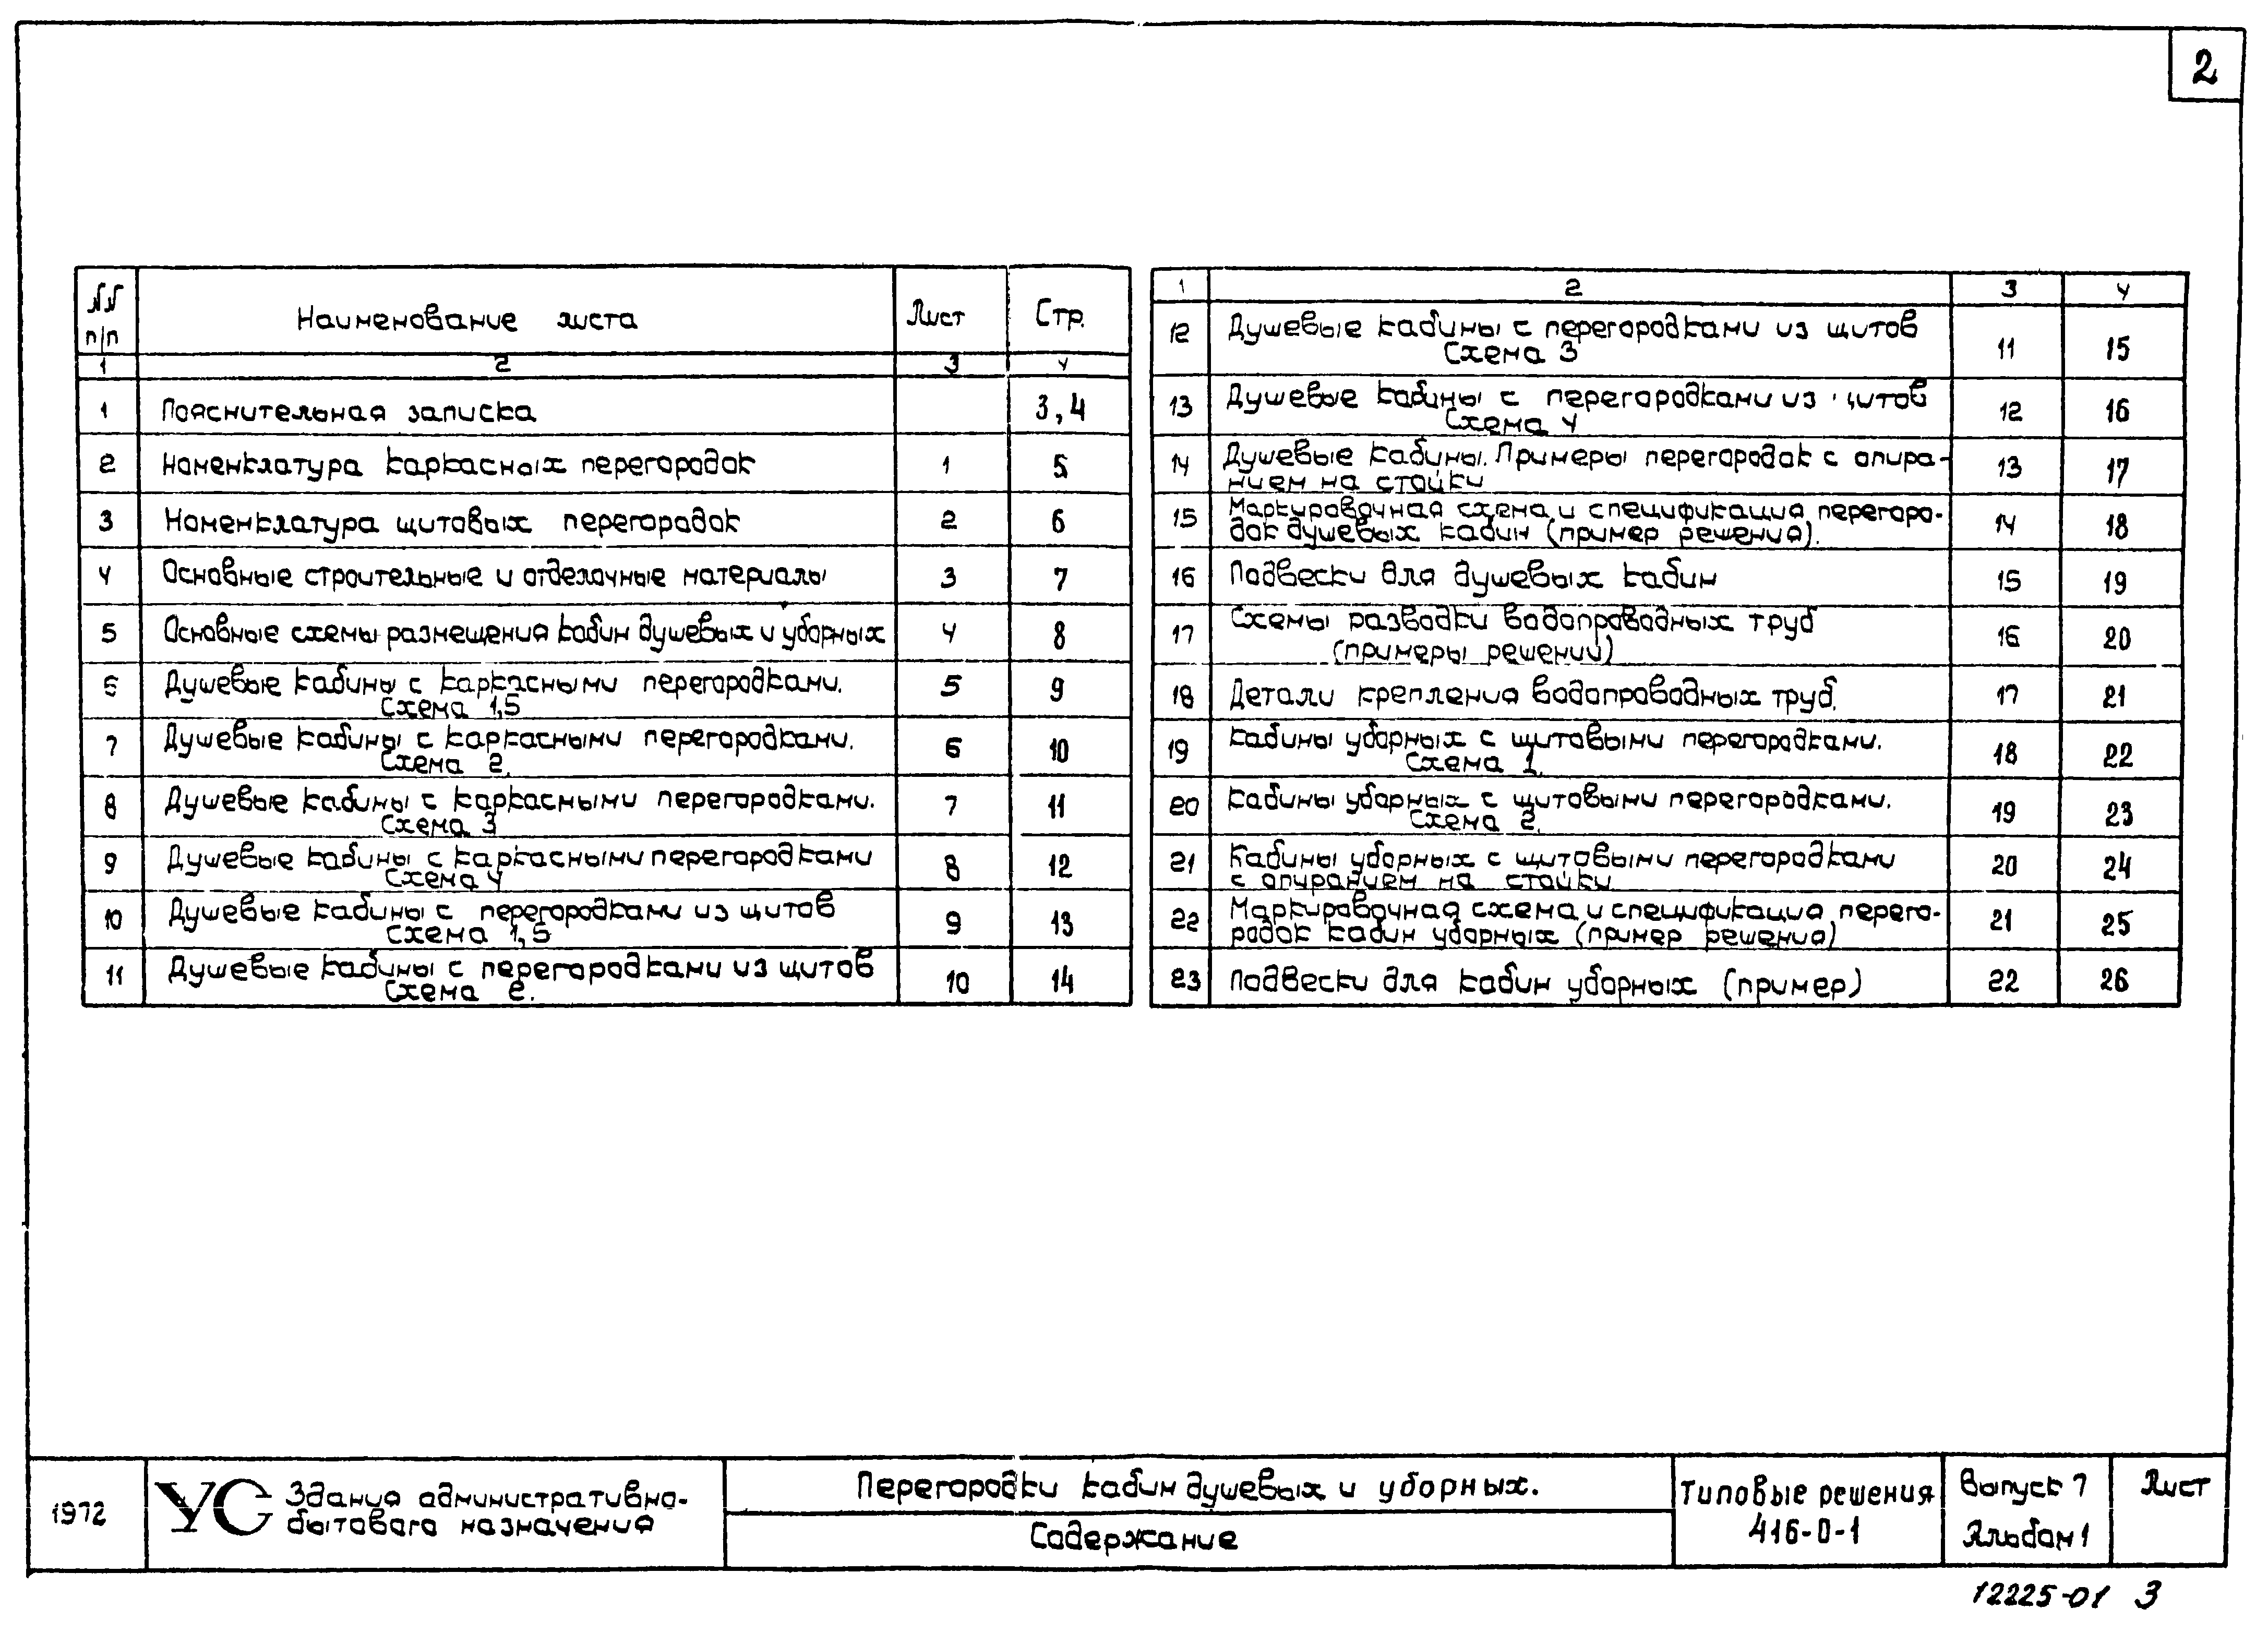 2
№№ п/п Наименование листа Лист Стр.
1 2 3 4
1 Пояснительная записка 3,4
2 Номенклатура каркасных перегородок 1 5
3 Номенклатура щитовых перегородок 2 6
4 Основные строительные и отделочные материалы 3 7
5 Основные схемы размещения кабин душевых и уборных 4 8
6 Душевые кабины с каркасными перегородками. 5 9
Схема 1,5
7 Душевые кабины с каркасными перегородками. 6 10
Схема 2.
8 Душевые кабины с каркасными перегородками. 7 11
Схема 3
9 Душевые кабины с каркасными перегородками 8 12
Схема 4
10 Душевые кабины с перегородками из щитов 9 13
Схема 1,5
11 Душевые кабины с перегородками из щитов 10 14
Схема 2.
1 2 3 4
12 Душевые кабины с перегородками из щитов 11 15
Схема 3
13 Душевые кабины с перегородками из щитов 12 16
Схема 4
14 Душевые кабины. Примеры перегородок с опира- 13 17
нием на стойки
15 Маркировочная схема и спецификация перегоро- 14 18
док душевых кабин (пример решения).
16 Подвески для душевых кабин 15 19
17 Схемы разводки водопроводных труб 16 20
(примеры решений)
18 Детали крепления водопроводных труб. 17 21
19 Кабины уборных с щитовыми перегородками. 18 22
Схема 1.
20 Кабины уборных с щитовыми перегородками. 19 23
Схема 2.
21 Кабины уборных с щитовыми перегородками 20 24
с опиранием на стойки
22 Маркировочная схема и спецификация перего- 21 25
родок кабин уборных (пример решения)
23 Подвески для кабин уборных (пример) 22 26
1972
УС Здания административно-
бытового назначения
Перегородки кабин душевых и уборных.
Содержание
Типовые решения
416-0-1
Выпуск 7
Альбом 1
Лист
12225-01 3